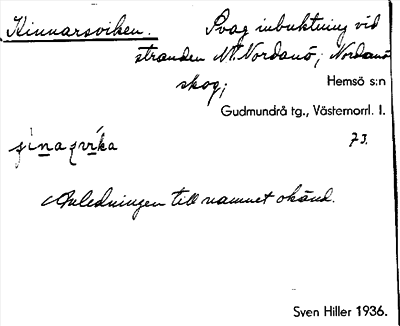 Kinnarsviken. Svag inbuktning vid
stranden N. Nordanö; Nordanö
skog; Hemsö s:n
Gudmundrå tg., Västernorrl. l.
73.
Anledningen till namnet okänd.
Sven Hiller 1936.